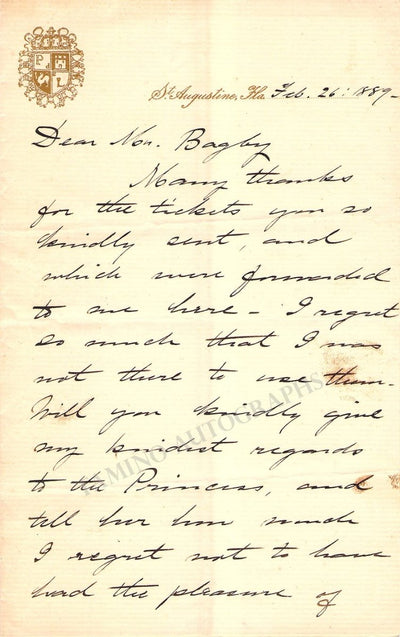 St. Augustine, Fla. Feb. 26: 1889-
Dear Mr. Bagby
Many thanks
for the tickets you so
kindly sent, and
which were forwarded
to me here - I regret
so much that I was
not there to use them.
Will you kindly give
my kindest regards
to the Princess, and
tell her how much
I regret not to have
had the pleasure of
TAMINO AUTOGRAPHS